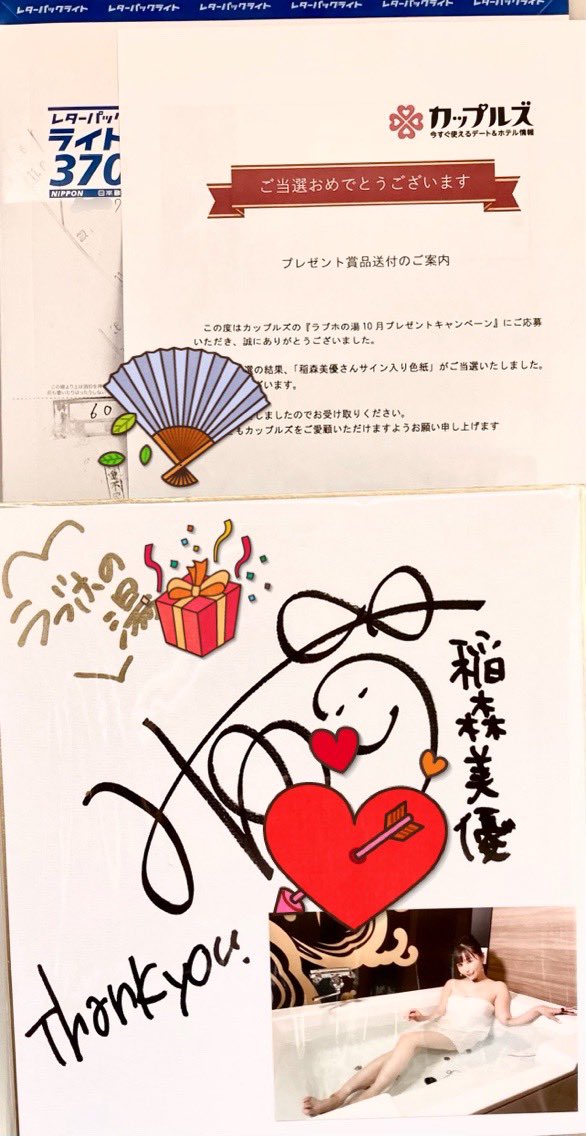 レターパックライト レターパックライト レターパックライト レターパックライト レターパックライト レターパックライト
レターパッ
ライト
370
NIPPON 日本郵
カップルズ
今すぐ使えるデート&ホテル情報
ご当選おめでとうございます
プレゼント賞品送付のご案内
この度はカップルズの『ラブホの湯10月プレゼントキャンペーン』にご応募
いただき、誠にありがとうございました。
選の結果、「稲森美優さんサイン入り色紙」がご当選いたしました。
ざいます。
しましたのでお受け取りください。
もカップルズをご愛顧いただけますようお願い申し上げます
60
ラブホの
湯
稲森美優
Thank you.